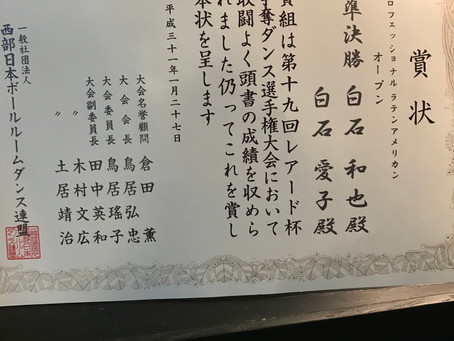 賞状
ロフェッショナル ラテンアメリカン
オープン
準決勝 白石 和也殿
白石 愛子殿
貴組は第十九回レアード杯
争奪ダンス選手権大会において
敢闘よく頭書の成績を収めら
れました仍ってこれを賞し
本状を呈します
平成三十一年一月二十七日
大会名誉顧問 倉田 薫
大会会長 鳥居弘忠
大会委員長 鳥居瑤子
大会副委員長 田中英和
〃 木村文広
〃 土居靖治
一般社団法人
西部日本ボールルームダンス連盟